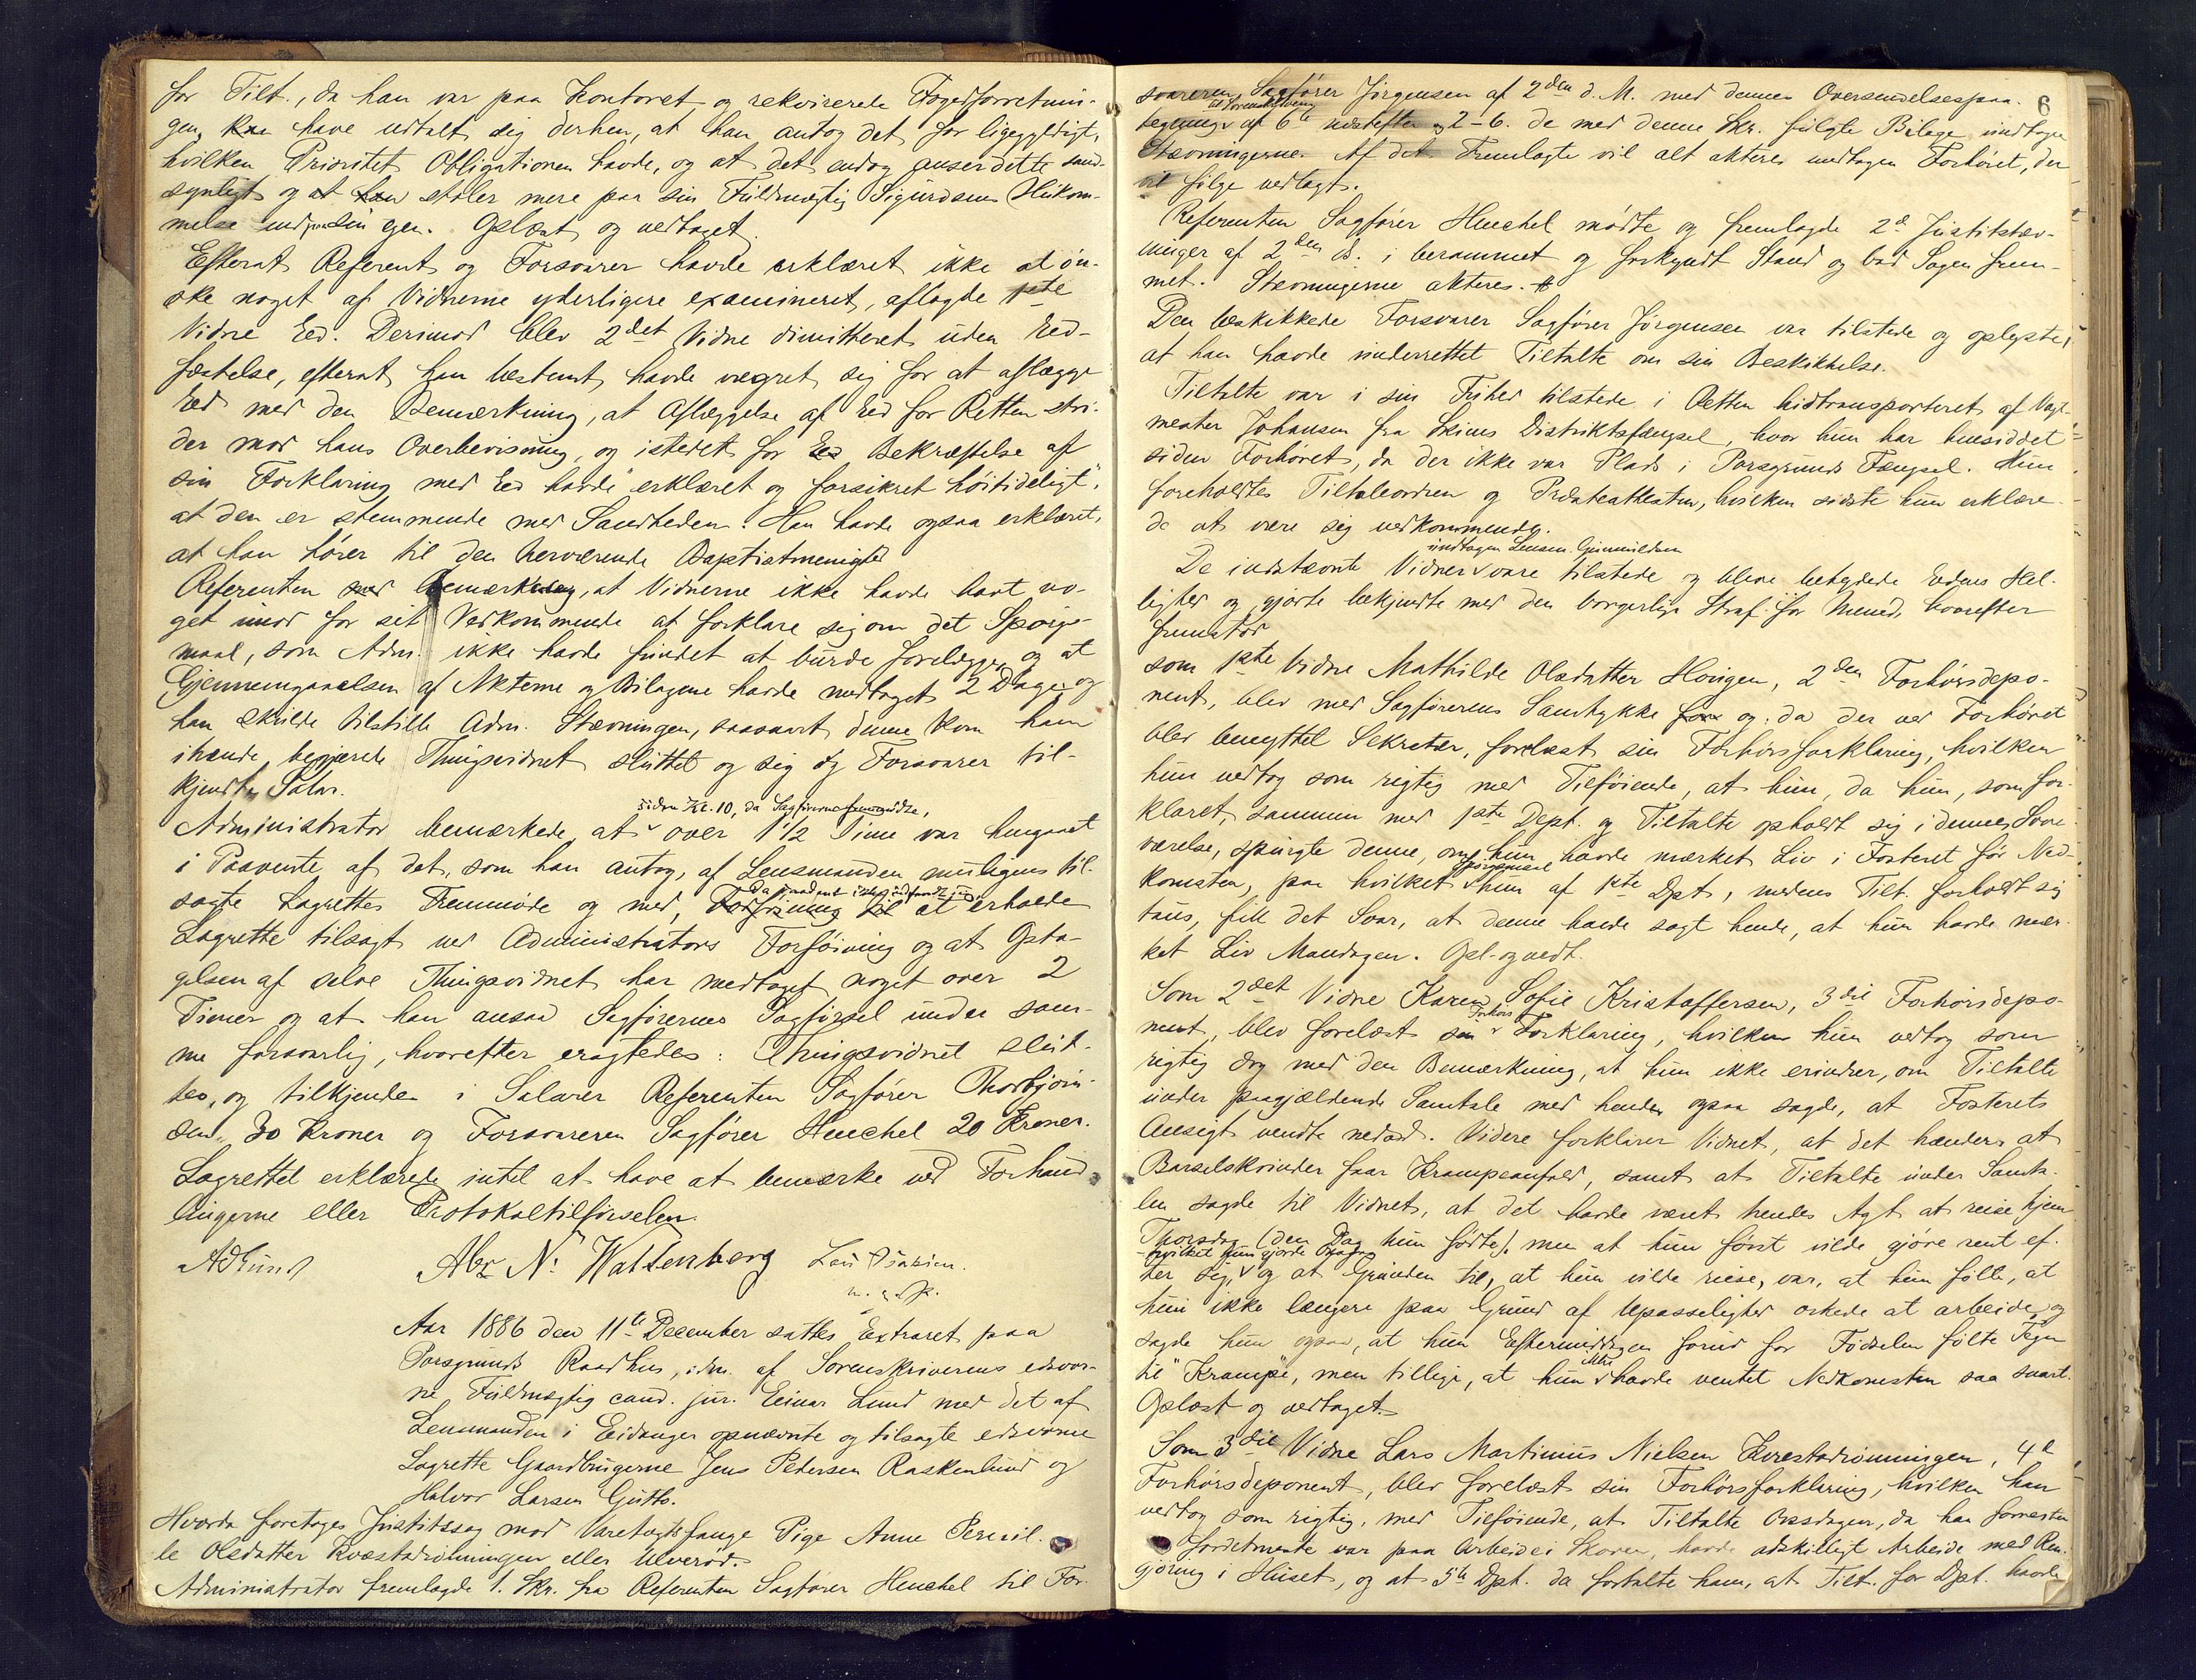 for Tilt., da han var paa Kontoret og rekvirerede Fogedforretnin-
gen, kan have udtalt sig derhen, at han antog det for ligegyldigt,
hvilken Prioritet Obligationen havde, og at det endog anser dette sand-
synligt og at han stoler mere paa sin Fuldmægtig Sigurdsens Hukom-
melse end paa sin egen. Oplæst og vedtaget.
Efterat Referent og Forsvarer havde erklæret ikke at øn-
ske noget af Vidnerne yderligere examineret, aflagde 1ste
Vidne Ed. Derimod blev 2det Vidne dimitteret uden Eed-
fæstelse, efterat han bestemt havde vægret sig for at aflægge
Eed med den Bemærkning, at Aflæggelse af Eed for Retten stri-
der mod hans Overbevisning, og istedet for Eed Bekræftelse af
sin Forklaring med Eed havde "erklæret og forsikret høitideligt",
at den er stemmende med Sandheden. Han havde ogsaa erklæret,
at han hører til den herværende Baptistmenighed
Referenten med bemærkning, at Vidnerne ikke havde havt no-
get imod for sit Vedkommende at forklare sig om det Spørgs-
maal, som Adm. ikke havde fundet at burde forelægges og at
Gjennemgaaelsen af Akterne og Bilagene havde medtaget 2 Dage og
han skulde tilstille Adm. Stævningen, saasnart denne kom ham
ihænde, begjærede Thingsvidnet sluttet og sig og Forsvarer til-
kjendt Salær.
siden Kl. 10, da Sagførerne fremmødte,
Administrator bemærkede, at over 1 1/2 Time var hengaaet
i Paavente af det, som han antog, af Lensmanden muligens til-
sagte Lagrettes Fremmøde og med, Forføining til at erholde
Lagrette tilsagt ved Administrators Forføining og at Opta-
gelsen af selve Thingsvidnet har medtaget noget over 2
Timer og at han ansaa Sagførernes Sagførsel under sam-
me forsvarlig, hvorefter eragtedes: Thingsvidnet slut-
tes, og tilkjendes i Salærer Referenten Sagfører Thorbjørn-
sen 30 Kroner og Forsvareren Sagfører Heuchel 20 Kroner.
Lagrettet erklærede intet at have at bemærke ved Forhand-
lingerne eller Protokoltilførselen.
Alex N. Wattenberg
Aar 1886 den 11te December sattes Extraret paa
Porsgrunds Raadhus, adm. af Sorenskriverens edsvor-
ne Fuldmægtig cand. jur. Einar Lund med det af
Lensmanden i Eidanger opnævnte og tilsagte edsvorne
Lagrette Gaardbrugerne Jens Pedersen Raskenlund og
Halvor Larsen Gutto.
Hvorda foretoges Justitssag mod Varetægtsfange Pige Anne Pernil-
le Olsdatter Kvæstadrønningen eller Ulverød.
Administrator fremlagde 1. Skr. fra Referenten Sagfører Heuchel til For-
6
svareren Sagfører Jørgensen af 2den d. M. med dennes Oversendelsespaa-
tegning af 6te næstefter og 2-6. de med denne Skr. fulgte Bilage undtagen
Stævningerne. Af det Fremlagte vil alt akteres undtagen Forhøret, der
vil følge vedlagt.
Referenten Sagfører Heuchel mødte og fremlagde 2de Justitsstæv-
ninger af 2den ds. i berammet og forkyndt Stand og bad Sagen frem-
met. Stævningerne akteres.
Den beskikkede Forsvarer Sagfører Jørgensen var tilstede og oplyste,
at han havde underrettet Tiltalte om sin Beskikkelse.
Tiltalte var i sin Frihed tilstede i Retten hidtransporteret af Vagt-
mester Johansen fra Skiens Distriktsfængsel, hvor hun har hensiddet
siden Forhøret, da der ikke var Plads i Porsgrunds Fængsel. Hun
foreholdtes Tiltaleordren og Præsteattesten, hvilken sidste hun erklære-
de at være sig vedkommende.
undtagen Lensm. Gunnuldsen
De indstævnte Vidner vare tilstede og bleve betydede Edens Hel-
lighed og gjorte bekjendte med den borgerlige Straf for Mened, hvorefter
fremstod
som 1ste Vidne Mathilde Olsdatter Hovigen, 2den Forhørsdepo-
nent, blev med Sagførerens Samtykke og da der ved Forhøret
blev benyttet Sekretær, forelæst sin Forhørsforklaring, hvilken
hun vedtog som rigtig med Tilføiende, at hun, da hun, som for-
klaret, sammen med 1ste Dept. og Tiltalte opholdt sig i dennes Sove-
værelse, spurgte denne, om hun havde mærket Liv i Fosteret før Ned-
komsten, paa hvilket Spørgsmaal hun af 1ste Dpt., medens Tilt. forholdt sig
taus, fik det Svar, at denne havde sagt hende, at hun havde mær-
ket Liv Mandagen. Opl. og vedt.
Som 2det Vidne Karen Sofie Kristoffersen, 3die Forhørsdepo-
nent, blev forelæst sin Forhørs Forklaring, hvilken hun vedtog som
rigtig dog med den Bemærkning, at hun ikke erindrer, om Tiltalte
under paagjældende Samtale med hende, ogsaa sagde, at Fosterets
Ansigt vendte nedad. Videre forklarer Vidnet, at det hænder, at
Barselskvinder faar Krampeanfald, samt at Tiltalte under Samta-
len sagde til Vidnet, at det havde været hendes Agt at reise hjem
Thorsdag (den Dag hun fødte), men at hun først vilde gjøre rent ef-
hvilket hun gjorde Onsdag
ter sig, og at Grunden til, at hun vilde reise, var, at hun følte, at
hun ikke længere paa Grund af Upasselighed orkede at arbeide, og
sagde hun ogsaa, at hun Eftermiddagen forud for Fødselen følte Tegn
til "Krampe", men tillige, at hun ikke havde ventet Nedkomsten saa snart.
Oplæst og vedtaget.
Som 3die Vidne Lars Martinius Nielsen Kvæstadrønningen, 4de
Forhørsdeponent, blev forelæst sin Forhørsforklaring, hvilken han
vedtog som rigtig, med Tilføiende, at Tiltalte Onsdagen, da han forresten
fordetmeste var paa Arbeide i Skoven, havde adskilligt Arbeide med Ren-
gjøring i Huset, og at 5te Dpt. da fortalte ham, at Tilt. for Dpt. havde